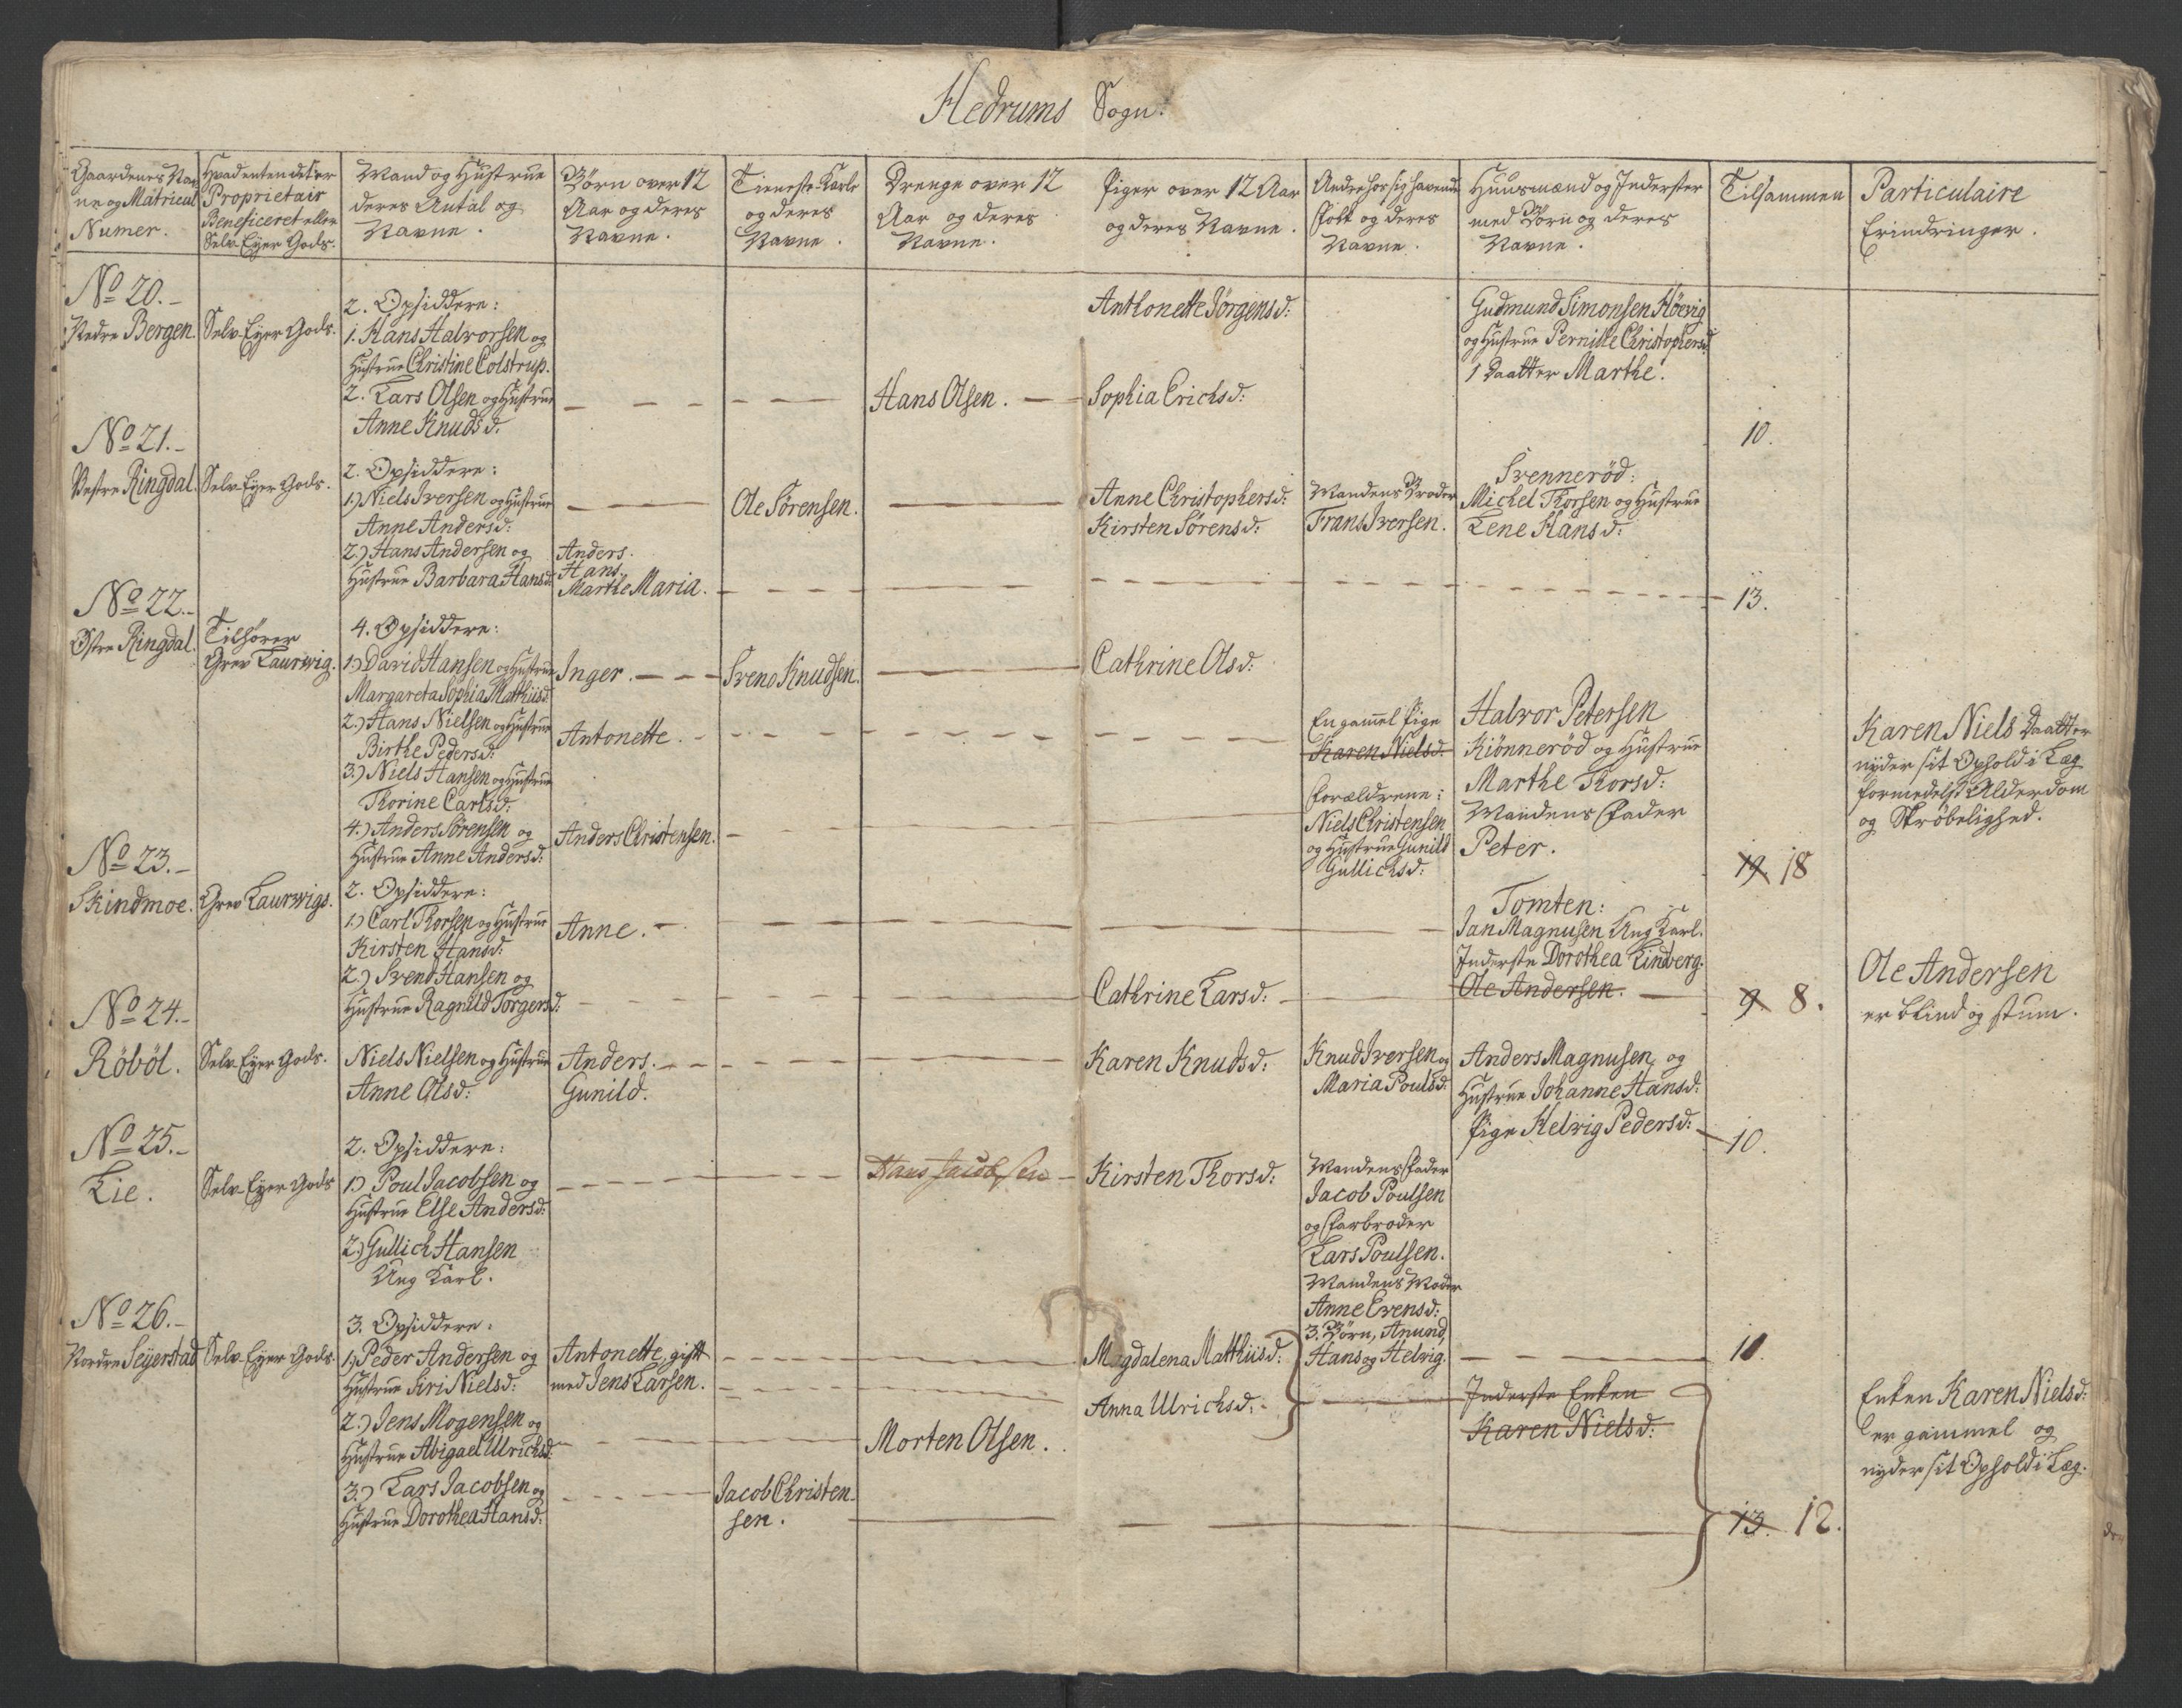 Hedrums Sogn.
Gaardenes Nav-
ne og Matricul
Numer.
Hvad enten det er
Proprietair
Beneficeret eller
Selv-Eyer Gods.
Mand og Hustrue
deres Antal og
Navne.
Börn over 12
Aar og deres
Navne.
Tieneste-Karle
og deres
Navne.
Drenge over 12
Aar og deres
Navne.
Piger over 12 Aar
og deres Navne.
Andre hos sig havende
Folk og deres
Navne.
Huusmænd og Inderster
med Börn og deres
Navne.
Tilsammen
Particulaire
Erindringer.
No 20.-
Nedre Bergen.
Selv-Eyer Gods.
2. Opsiddere:
1. Hans Halvorsen og
Hustrue Christine Colstrup.
2. Lars Olsen og Hustrue
Anne Knudsd.
Hans Olsen.
Anthonette Jörgensd:
Sophia Erichsd:
Gudmund Simonsen Höevig
og Hustrue Pernille Christophersd.
1 Daatter Marthe.
10.
No 21.-
Vestre Ringdal.
Selv-Eyer Gods.
2. Opsiddere:
1.) Niels Iversen og Hustrue
Anne Andersd:
2.) Hans Andersen og
Hustrue Barbara Hansd:
Anders.
Hans.
Marthe Maria.
Ole Sörensen.
Anne Christophersd:
Kirsten Sörensd:
Mandens Broder
Frans Iversen.
Svenneröd:
Michel Thorsen og Hustrue
Lene Hansd:
13.
No 22.-
Östre Ringdal.
Tilhörer
Grev Laurwig.
4. Opsiddere:
1.) David Hansen og Hustrue
Margareta Sophia Mathiisd:
2.) Hans Nielsen og Hustrue
Birthe Pedersd:
3.) Niels Hansen og Hustrue
Thorine Carlsd:
4.) Anders Sörensen og
Hustrue Anne Andersd:
Inger.
Antonette.
Anders Christensen.
Svend Knudsen.
Cathrine Olsd:
En gammel Pige
Karen Nielsd.
Forældrene:
Niels Christensen
og Hustrue Gunild
Gullichsd:
Halvor Petersen
Kiönneröd og Hustrue
Marthe Thorsd:
Mandens Fader
Peter.
19. 18
Karen Niels Daatter
nyder sit Ophold i Læg
formedelst Alderdom
og Skröbelighed.
No 23.-
Skindmoe.
Grev Laurwigs.
2. Opsiddere:
1.) Carl Thorsen og Hustrue
Kirsten Hansd:
2.) Svend Hansen og
Hustrue Ragnild Torgersd:
Anne.
Cathrine Larsd:
Tomten:
Jan Magnusen Ung Karl.
Inderste Dorothea Lindberg.
Ole Andersen.
9 8.
Ole Andersen
er blind og stum.
No 24.-
Röböl.
Selv-Eyer Gods.
Niels Nielsen og Hustrue
Anne Olsd:
Anders.
Gunild.
Karen Knudsd:
Knud Iversen og
Maria Poulsd:
Anders Magnusen og
Hustrue Johanne Hansd:
Pige Helvig Pedersd:
10.
No 25.-
Lie.
Selv-Eyer Gods
2. Opsiddere:
1.) Poul Jacobsen og
Hustrue Else Andersd:
2.) Gullich Hansen
Ung Karl.
Hans Jacobsen
Kirsten Thorsd:
Mandens Fader
Jacob Poulsen
og Farbroder
Lars Poulsen.
Mandens Moder
Anne Evensd:
3. Börn, Anund,
Hans og Helvig.
10.
No 26.-
Nordre Seyerstad
Selv-Eyer Gods.
3. Opsiddere:
1.) Peder Andersen og
Hustrue Siri Nielsd:
2.) Jens Mogensen og
Hustrue Abigael Ulrichsd:
3.) Lars Jacobsen og
Hustrue Dorothea Hansd:
Antonette, gift
med Jens Larsen.
Jacob Christen-
sen.
Morten Olsen.
Magdalena Mathiisd:
Anna Ulrichsd:
Inderste Enken
Karen Nielsd:
13. 12.
Enken Karen Nielsd:
er gammel og
nyder sit Ophold i Læg.